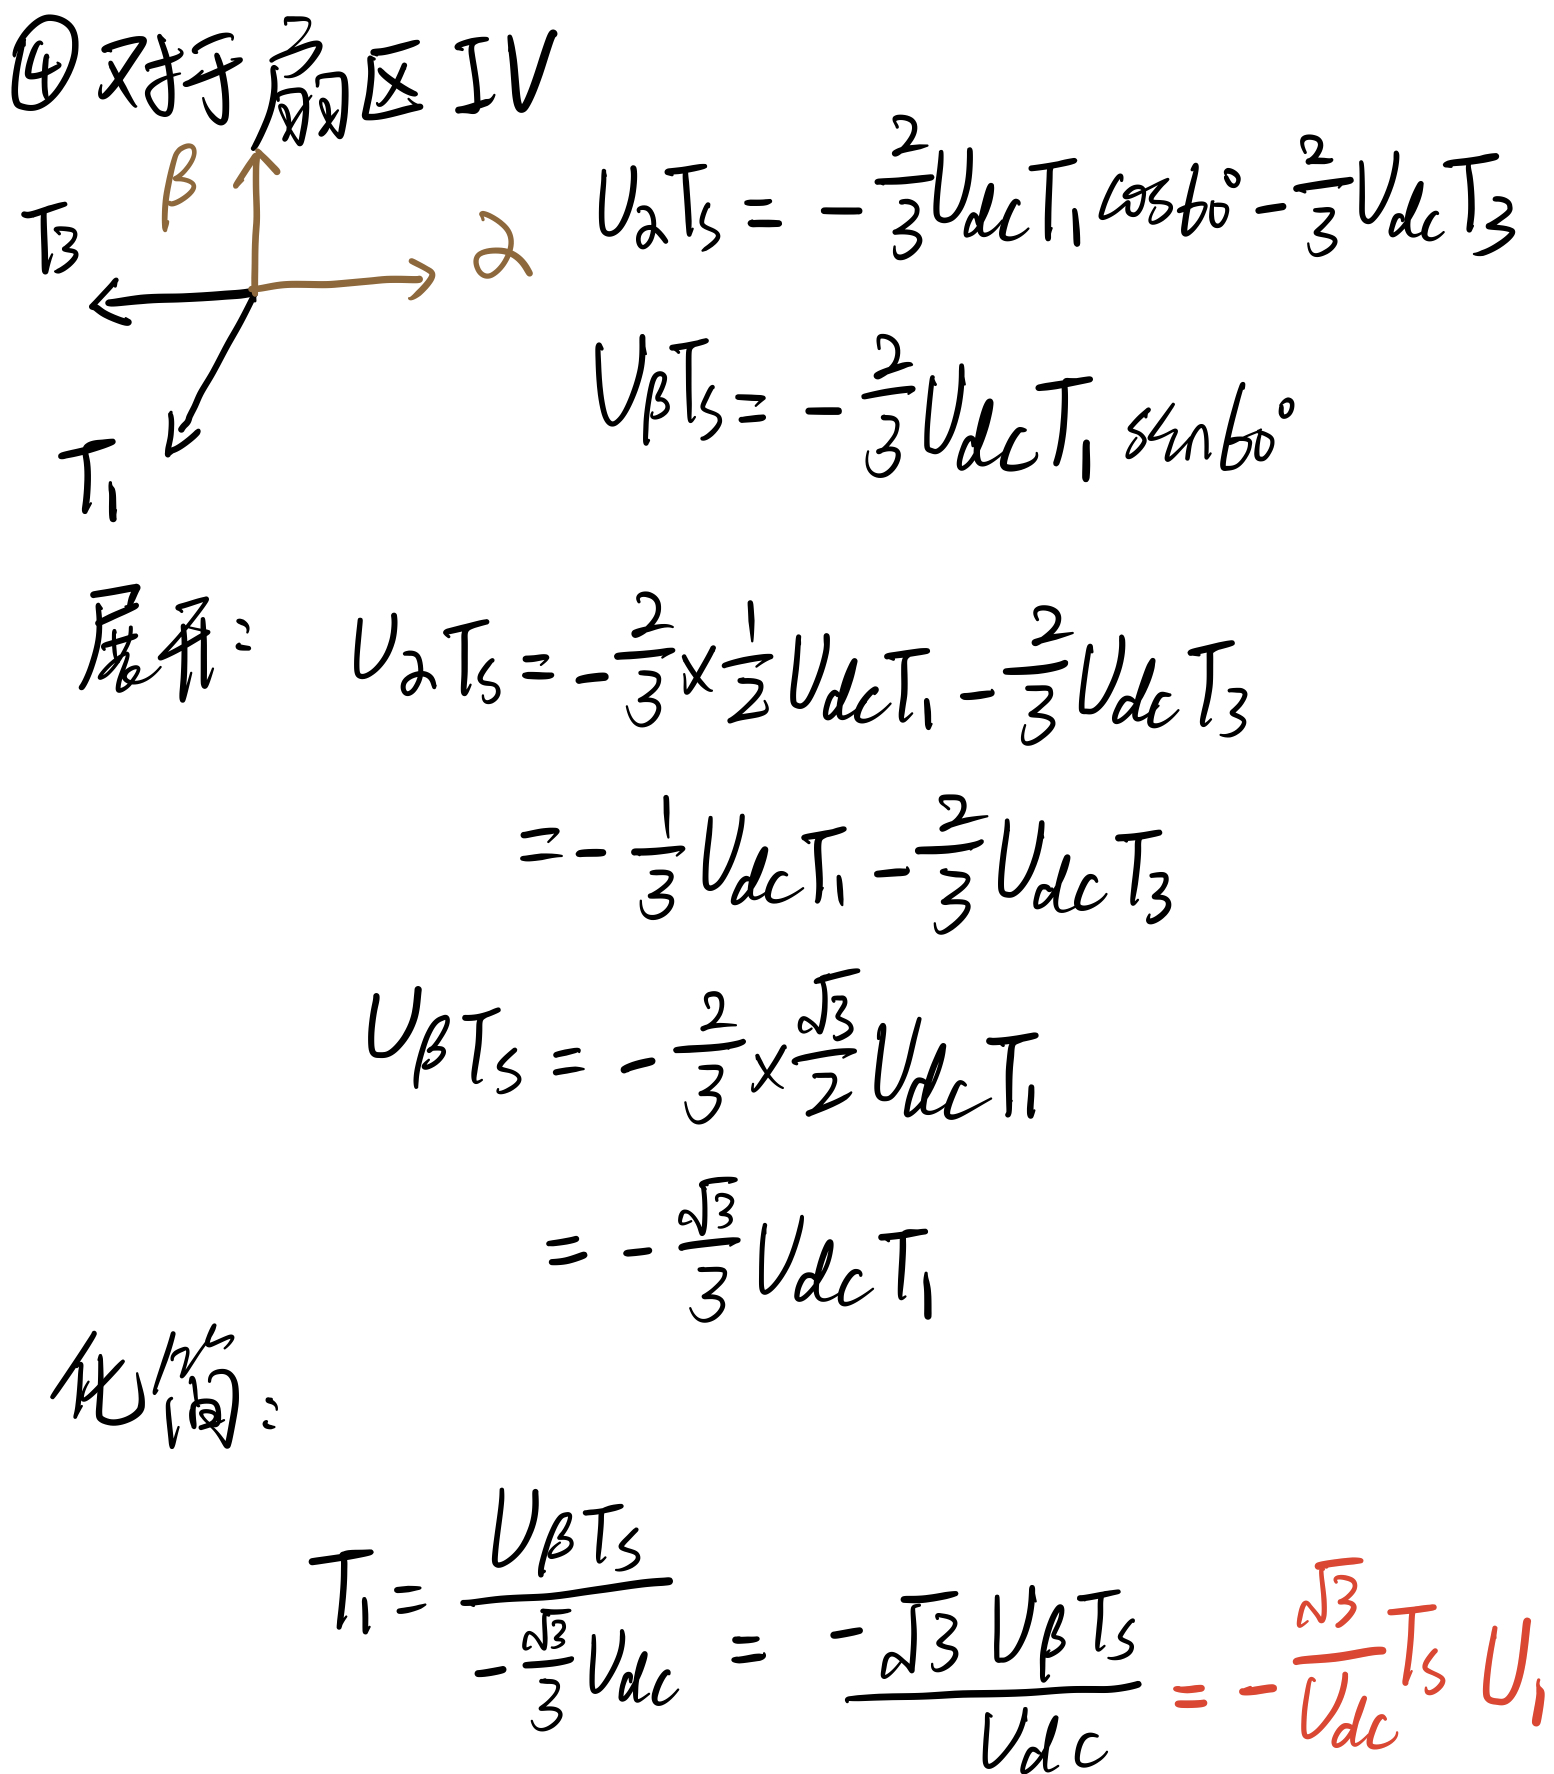 ④对于扇区 IV
β
T₃
α
T₁
UαTs = -2/3 UdcT₁cos60° - 2/3 UdcT₃
UβTs = -2/3 UdcT₁ sin60°
展开: UαTs = -2/3 × 1/2 UdcT₁ - 2/3 UdcT₃
= -1/3 UdcT₁ - 2/3 UdcT₃
UβTs = -2/3 × √3/2 UdcT₁
= -√3/3 UdcT₁
化简:
T₁ = UβTs / (-√3/3 Udc) = -√3 UβTs / Udc = -√3/Udc Ts U₁